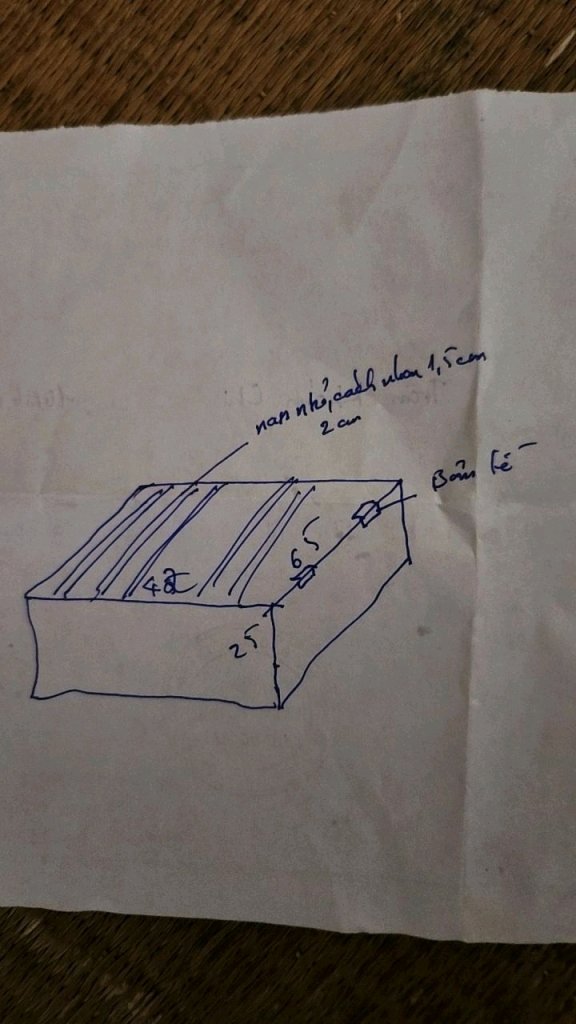 nan nhỏ, cách nhau 1,5 cm
2 cm
Bản lề
65
25